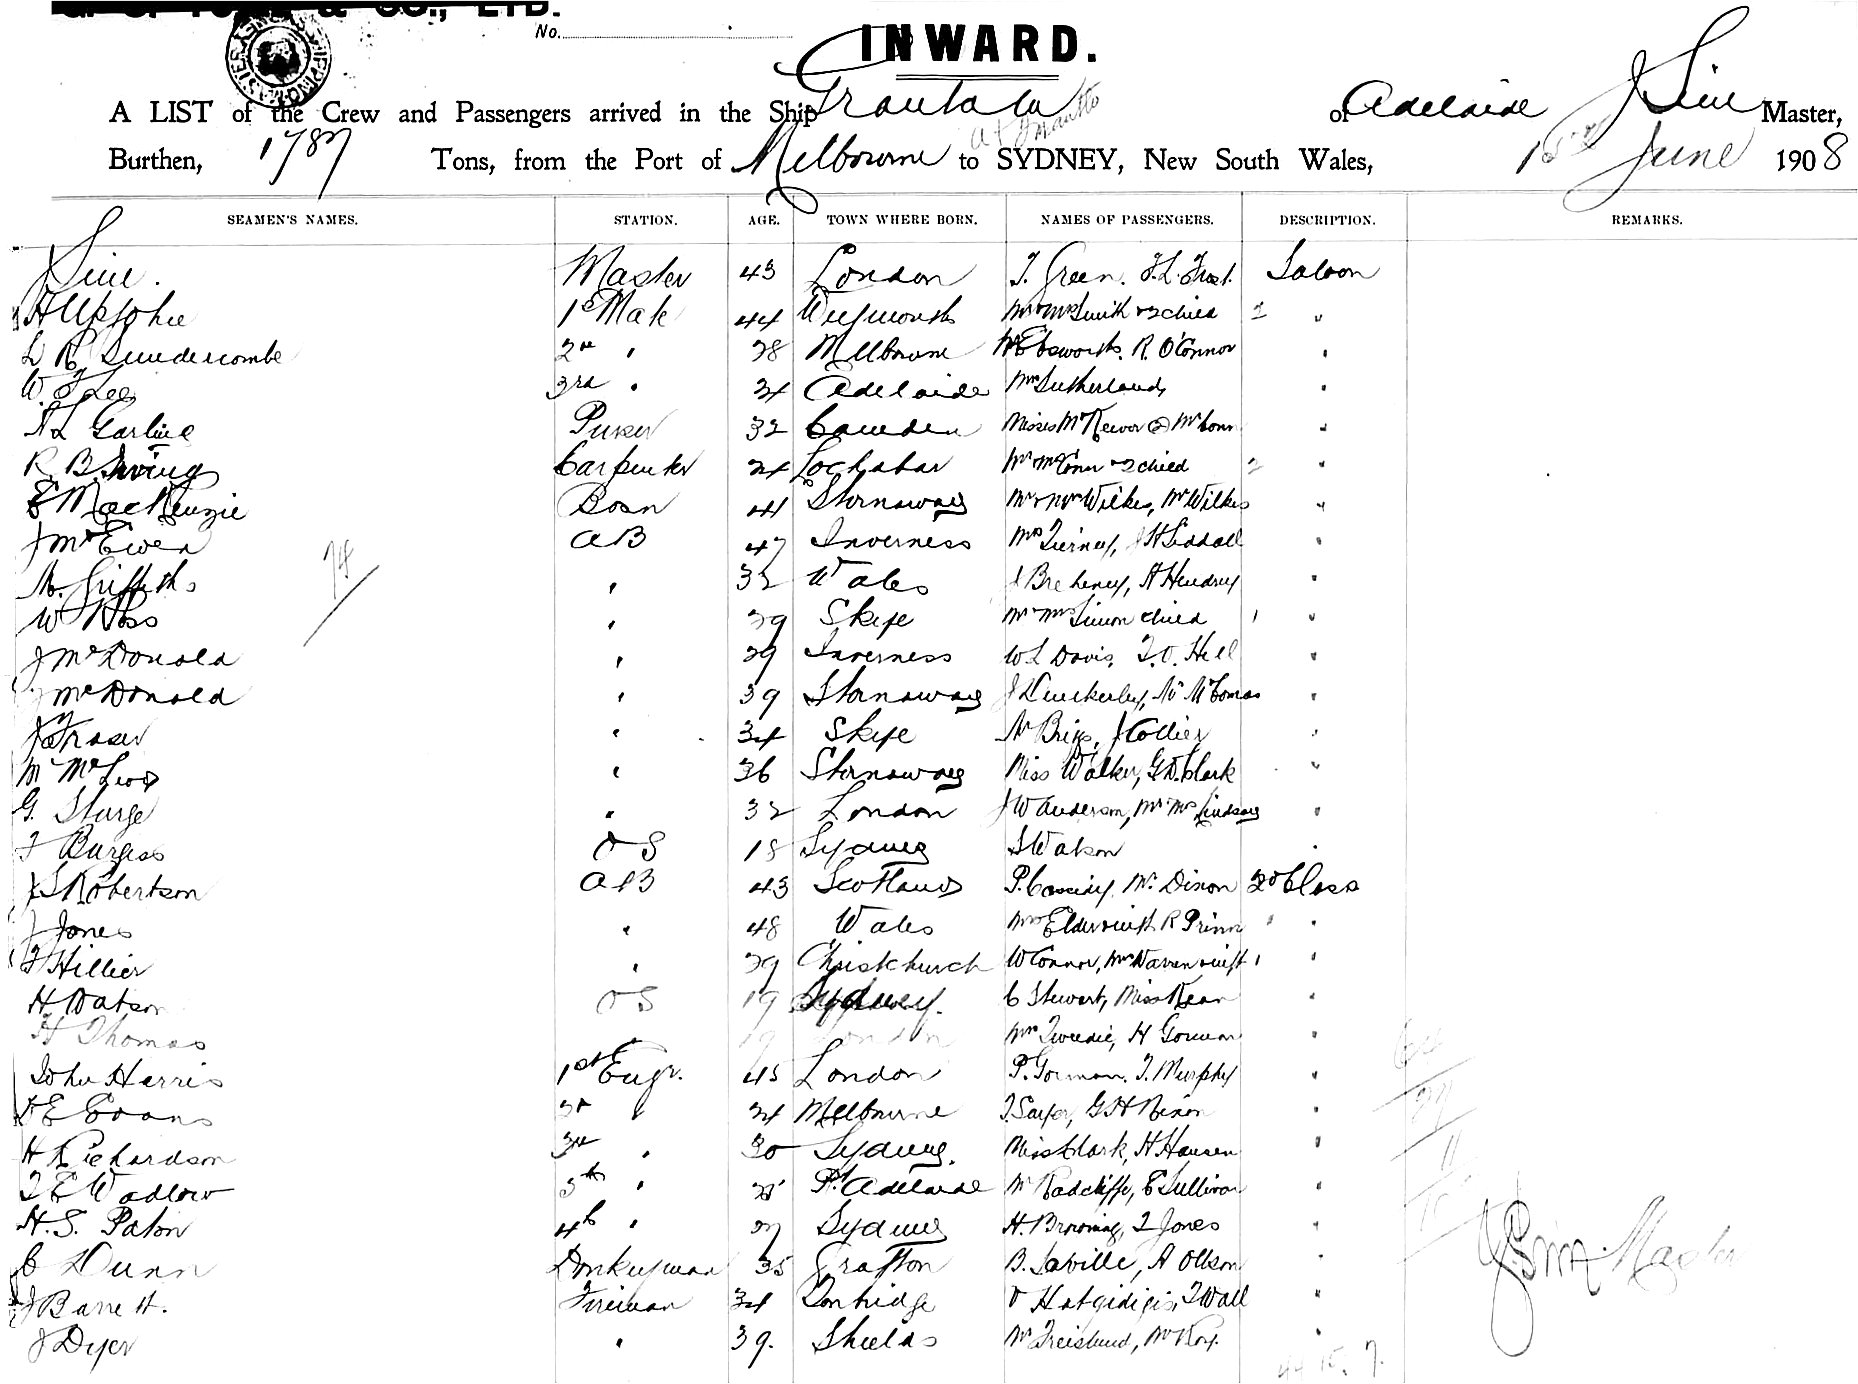 & CO., LTD.
No.
INWARD.
A LIST of the Crew and Passengers arrived in the Ship Grantala of Adelaide J Sim Master,
Burthen, 1787 Tons, from the Port of Melbourne to SYDNEY, New South Wales, 15th June 1908
SEAMEN'S NAMES. STATION. AGE. TOWN WHERE BORN. NAMES OF PASSENGERS. DESCRIPTION. REMARKS.
J Sim. Master 43 London T. Green. Saloon
1st Mate 44 Weymouth Mr & Mrs Smith & 2 child 2 "
2nd " 28 Melbourne R. O'Connor "
W. Lee 3rd " 24 Adelaide Mrs Sutherland "
A L Garline Purser 32 Camden Misses "
R B Irving Carpenter 24 Lochabar & 2 child 2 "
E MacKenzie Bosn 41 Stornoway Mr & Mrs Wilkes, Mr Wilkes "
J McEwen AB 47 Inverness Mrs Tierney, J H Siddall "
M. Griffiths " 32 Wales A Hendry "
W Ross " 29 Skye Mr Mrs Simon child 1 "
J McDonald " 29 Inverness W L Davis, T.O. Hill "
J McDonald " 39 Stornoway "
J Fraser " 34 Skye J Collier "
M McLeod " 36 Stornoway Miss Walker, G D. Clark "
G. Sturge " 32 London J W Anderson, Mr Mrs Lindsay "
F Burgess OS 18 Sydney S Watson "
J S Robertson AB 43 Scotland P. Cassidy, Mr. Dixon 2d Class
J Jones " 48 Wales R Prinn "
F Hillier " 29 Christchurch W Connor, 1 "
H. Watson OS 19 Sydney. C Stewart, Miss Kean "
H Thomas 19 London Mrs Tweedie, H Gorman "
John Harris 1st Engr. 45 London P. Gorman. T. Murphy "
D E Evans 2d " 34 Melbourne G H Nixon "
H Richardson 3rd " 30 Sydney. Miss Clark, H Hansen "
T E Wadlow 5th " 25 Pt Adelaide Mr Radcliffe, E Sullivan "
H. S. Paton 4th " 27 Sydney H. Browning, T Jones "
C Dunn Donkeyman 35 Grafton B. Saville, A Olson "
J Barrett. Fireman 34 T Wall "
J Dyer " 39. Shields Mr Roy. "
J Sim Master